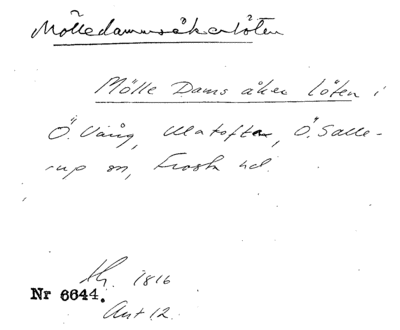 Mölledammsåkerlöten
Mölle Dams åker löten i
Ö. Vång, Ulatofta, Ö. Salle-
rup sn, Frosta hd.
1816
Nr 6644.
Akt 12.